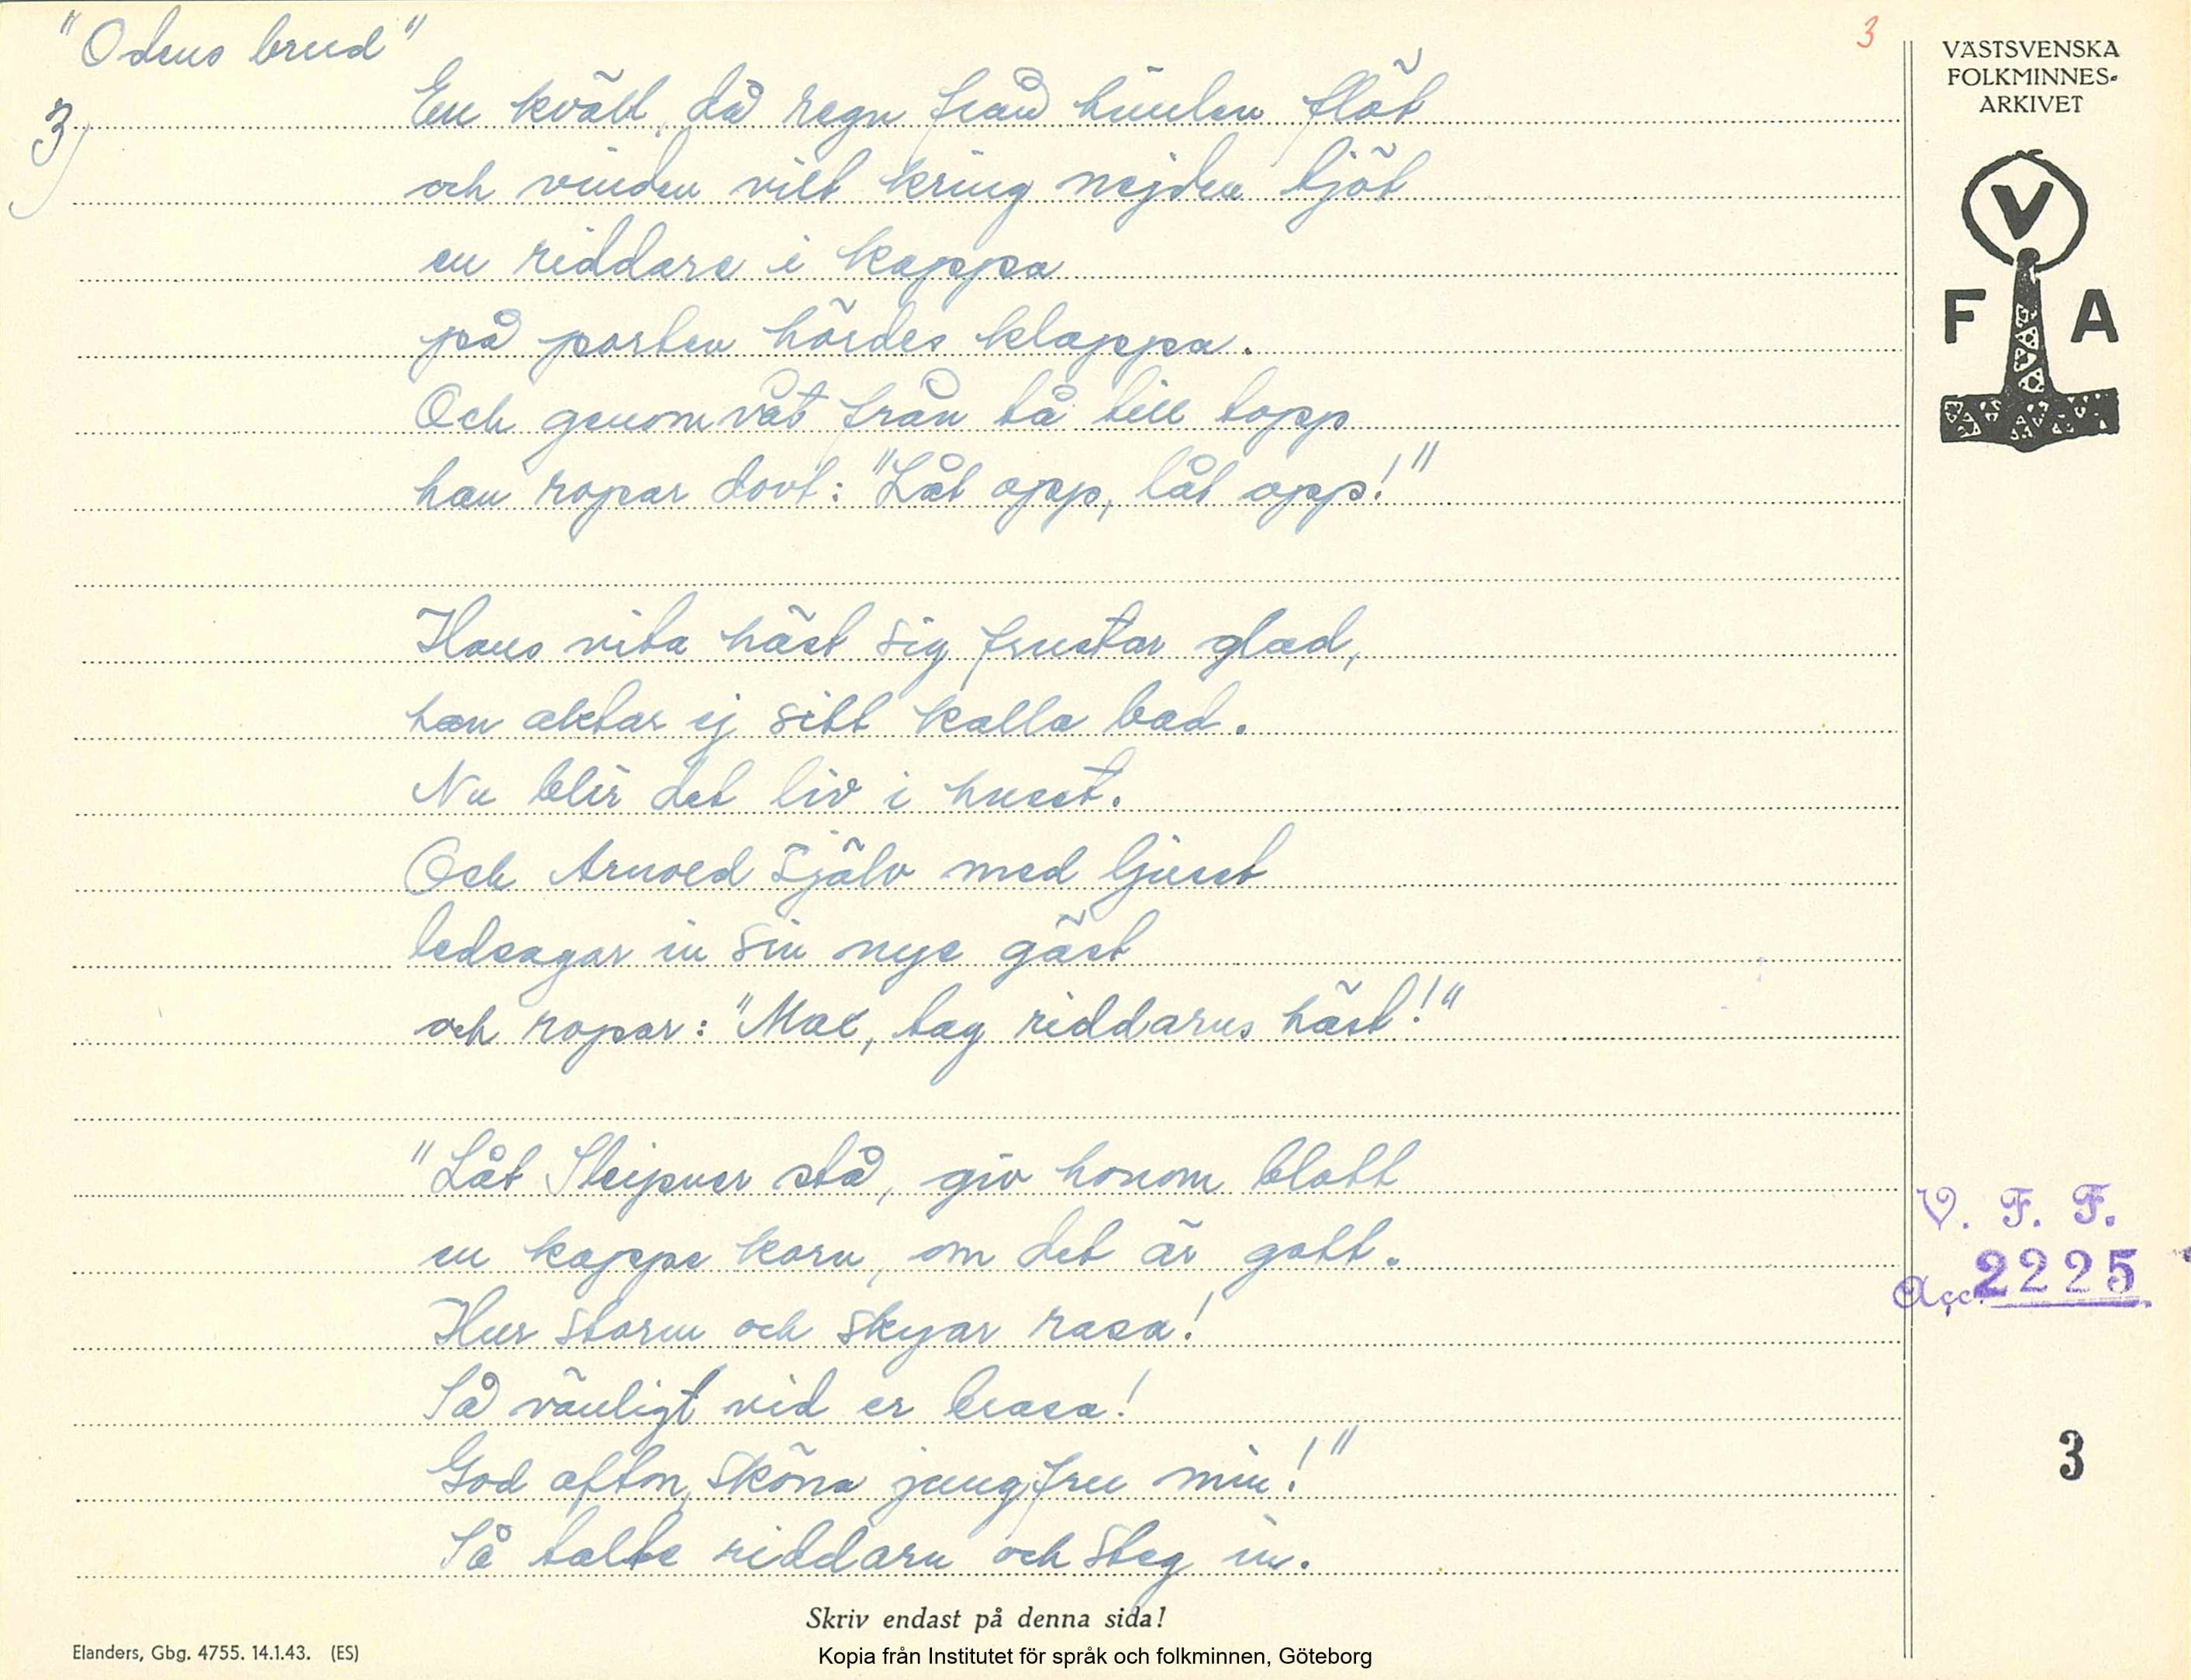 "Odens brud"
3
3)
En kväll, då regn från himlen flöt
och vinden vilt kring nejden tjöt
en riddare i kappa
på porten hördes klappa.
Och genomvåt från tå till topp
han ropar dovt: "Låt opp, låt opp!"
Hans vita häst sig frustar glad,
han aktar ej sitt kalla bad.
Nu blir det liv i huset.
Och Arnold själv med ljuset
ledsagar in sin nye gäst
och ropar: "Max, tag riddarns häst!"
"Låt Sleipner stå, giv honom blott
en kappe korn, om det är gott.
Hur storm och skyar rasa!
Så vänligt vid er brasa!
God afton, sköna jungfru min!"
Så talte riddarn och steg in.
VÄSTSVENSKA
FOLKMINNES-
ARKIVET
V
F A
V. F. F.
Acc. 2225
3
Skriv endast på denna sida!
Elanders, Gbg. 4755. 14.1.43. (ES)
Kopia från Institutet för språk och folkminnen, Göteborg